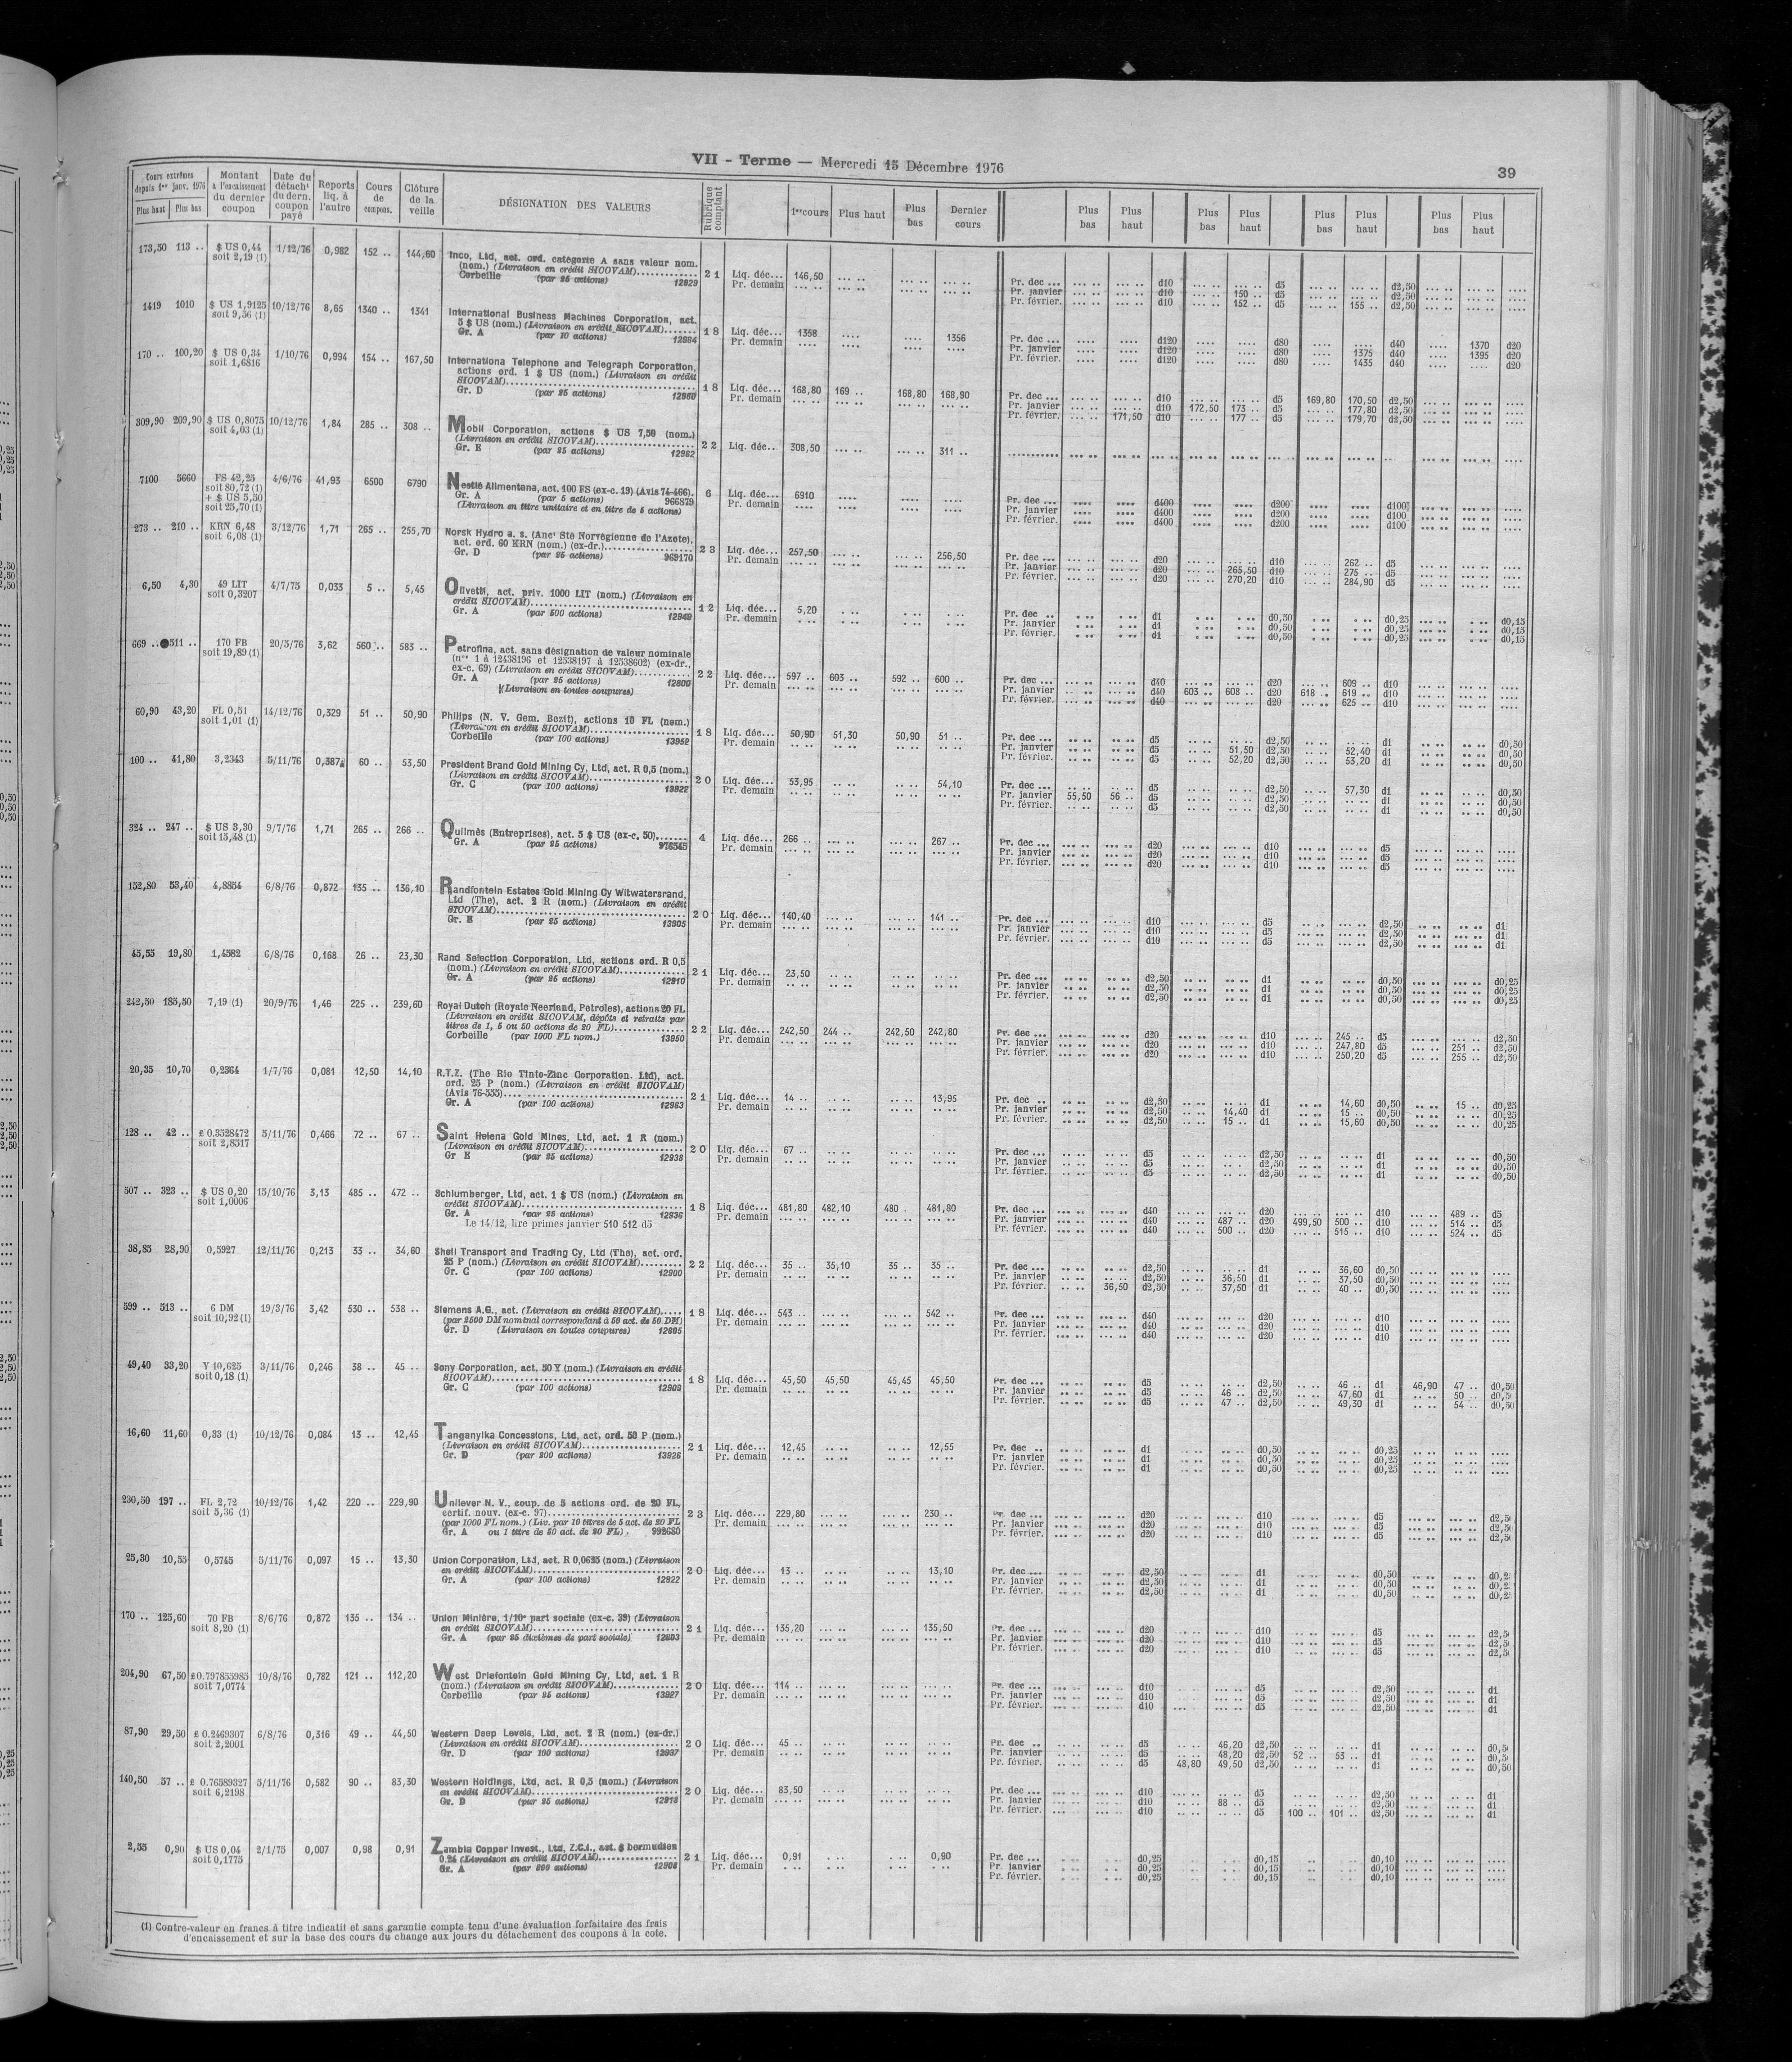 VII - Terme — Mercredi 15 Décembre 1976
39
Cours extrêmes depuis 1er janv. 1976
Plus haut Plus bas
Montant à l'encaissement du dernier coupon
Date du détacht du dern. coupon payé
Reports liq. à l'autre
Cours de compens.
Clôture de la veille
DÉSIGNATION DES VALEURS
Rubrique comptant
1er cours Plus haut Plus bas Dernier cours
Plus bas Plus haut Plus bas Plus haut Plus bas Plus haut Plus bas Plus haut
173,50 113 .. $ US 0,44 1/12/76 0,982 152 .. 144,60
soit 2,19 (1)
Inco, Ltd, act. ord. catégorie A sans valeur nom.
(nom.) (Livraison en crédit SICOVAM)
Corbeille (par 25 actions) 12829
2 1 Liq. déc... 146,50
Pr. demain
Pr. dec ... d10 d5 d2,50
Pr. janvier d10 150 .. d5 d2,50
Pr. février. d10 152 .. d5 155 .. d2,50
1419 1010 $ US 1,9125 10/12/76 8,65 1340 .. 1341
soit 9,56 (1)
International Business Machines Corporation, act.
5 $ US (nom.) (Livraison en crédit SICOVAM)
Gr. A (par 10 actions) 12884
1 8 Liq. déc... 1358 1356
Pr. demain
Pr. dec ... d120 d80 d40 1370 d20
Pr. janvier d120 d80 1375 d40 1395 d20
Pr. février. d120 d80 1435 d40 d20
170 .. 100,20 $ US 0,34 1/10/76 0,994 154 .. 167,50
soit 1,6816
Internationa Telephone and Telegraph Corporation,
actions ord. 1 $ US (nom.) (Livraison en crédit
SICOVAM)
Gr. D (par 25 actions) 12860
1 8 Liq. déc... 168,80 169 .. 168,80 168,90
Pr. demain
Pr. dec ... d10 d5 169,80 170,50 d2,50
Pr. janvier d10 172,50 173 .. d5 177,80 d2,50
Pr. février. 171,50 d10 177 .. d5 179,70 d2,50
309,90 209,90 $ US 0,8075 10/12/76 1,84 285 .. 308 ..
soit 4,03 (1)
Mobil Corporation, actions $ US 7,50 (nom.)
(Livraison en crédit SICOVAM)
Gr. E (par 25 actions) 12862
2 2 Liq. déc... 308,50 311 ..
7100 5660 FS 42,25 4/6/76 41,93 6500 6790
soit 80,72 (1)
+ $ US 5,50
soit 25,70 (1)
Nestlé Alimentana, act. 100 FS (ex-c. 19) (Avis 74-466).
Gr. A (par 5 actions) 966879
(Livraison en titre unitaire et en titre de 5 actions)
6 Liq. déc... 6910
Pr. demain
Pr. dec ... d400 d200 d100
Pr. janvier d400 d200 d100
Pr. février. d400 d200 d100
273 .. 210 .. KRN 6,48 3/12/76 1,71 265 .. 255,70
soit 6,08 (1)
Norsk Hydro a. s. (Anct Sté Norvégienne de l'Azote),
act. ord. 60 KRN (nom.) (ex-dr.)
Gr. D (par 25 actions) 969170
2 3 Liq. déc... 257,50 256,50
Pr. demain
Pr. dec ... d20 d10 262 .. d5
Pr. janvier d20 265,50 d10 275 .. d5
Pr. février. d20 270,20 d10 284,90 d5
6,50 4,30 49 LIT 4/7/75 0,033 5 .. 5,45
soit 0,3207
Olivetti, act. priv. 1000 LIT (nom.) (Livraison en
crédit SICOVAM)
Gr. A (par 500 actions) 12840
1 2 Liq. déc... 5,20
Pr. demain
Pr. dec .. d1 d0,50 d0,25 d0,15
Pr. janvier d1 d0,50 d0,25 d0,15
Pr. février. d1 d0,50 d0,25 d0,15
669 .. 511 .. 170 FB 20/5/76 3,62 560 .. 583 ..
soit 19,89 (1)
Petrofina, act. sans désignation de valeur nominale
(nos 1 à 12438196 et 12538197 à 12538602) (ex-dr.,
ex-c. 69) (Livraison en crédit SICOVAM)
Gr. A (par 25 actions) 12600
(Livraison en toutes coupures)
2 2 Liq. déc... 597 .. 603 .. 592 .. 600 ..
Pr. demain
Pr. dec ... d40 d20 609 .. d10
Pr. janvier d40 603 .. 608 .. d20 618 .. 619 .. d10
Pr. février. d40 d20 625 .. d10
60,90 43,20 FL 0,51 14/12/76 0,329 51 .. 50,90
soit 1,01 (1)
Philips (N. V. Gem. Bezit), actions 10 FL (nom.)
(Livraison en crédit SICOVAM)
Corbeille (par 100 actions) 13952
1 8 Liq. déc... 50,90 51,30 50,90 51 ..
Pr. demain
Pr. dec ... d5 d2,50 d1 d0,50
Pr. janvier d5 51,50 d2,50 52,40 d1 d0,50
Pr. février. d5 52,20 d2,50 53,20 d1 d0,50
100 .. 41,80 3,2343 5/11/76 0,387 60 .. 53,50
President Brand Gold Mining Cy, Ltd, act. R 0,5 (nom.)
(Livraison en crédit SICOVAM)
Gr. C (par 100 actions) 13922
2 0 Liq. déc... 53,95 54,10
Pr. demain
Pr. dec ... d5 d2,50 57,30 d1 d0,50
Pr. janvier 55,50 56 .. d5 d2,50 d1 d0,50
Pr. février. d5 d2,50 d1 d0,50
324 .. 247 .. $ US 3,30 9/7/76 1,71 265 .. 266 ..
soit 15,48 (1)
Quilmès (Entreprises), act. 5 $ US (ex-c. 50)
Gr. A (par 25 actions) 976545
4 Liq. déc... 266 .. 267 ..
Pr. demain
Pr. dec ... d20 d10 d5
Pr. janvier d20 d10 d5
Pr. février. d20 d10 d5
152,80 53,40 4,8854 6/8/76 0,872 135 .. 136,10
Randfontein Estates Gold Mining Cy Witwatersrand,
Ltd (The), act. 2 R (nom.) (Livraison en crédit
SICOVAM)
Gr. E (par 25 actions) 13905
2 0 Liq. déc... 140,40 141 ..
Pr. demain
Pr. dec ... d10 d5 d2,50 d1
Pr. janvier d10 d5 d2,50 d1
Pr. février. d10 d5 d2,50 d1
45,55 19,80 1,4582 6/8/76 0,168 26 .. 23,30
Rand Selection Corporation, Ltd, actions ord. R 0,5
(nom.) (Livraison en crédit SICOVAM)
Gr. A (par 25 actions) 12910
2 1 Liq. déc... 23,50
Pr. demain
Pr. dec ... d2,50 d1 d0,50 d0,25
Pr. janvier d2,50 d1 d0,50 d0,25
Pr. février. d2,50 d1 d0,50 d0,25
242,50 185,50 7,19 (1) 20/9/76 1,46 225 .. 239,60
Royal Dutch (Royale Neerland, Petroles), actions 20 FL
(Livraison en crédit SICOVAM, dépôts et retraits par
titres de 1, 5 ou 50 actions de 20 FL)
Corbeille (par 1000 FL nom.) 13950
2 2 Liq. déc... 242,50 244 .. 242,50 242,80
Pr. demain
Pr. dec ... d20 d10 245 .. d5 d2,50
Pr. janvier d20 d10 247,80 d5 251 .. d2,50
Pr. février. d20 d10 250,20 d5 255 .. d2,50
20,35 10,70 0,2364 1/7/76 0,081 12,50 14,10
R.T.Z. (The Rio Tinto-Zinc Corporation. Ltd), act.
ord. 25 P (nom.) (Livraison en crédit SICOVAM)
(Avis 76-555)
Gr. A (par 100 actions) 12963
2 1 Liq. déc... 14 .. 13,95
Pr. demain
Pr. dec .. d2,50 d1 14,60 d0,50 15 .. d0,25
Pr. janvier d2,50 14,40 d1 15 .. d0,50 d0,25
Pr. février. d2,50 15 .. d1 15,60 d0,50 d0,25
128 .. 42 .. £ 0.3328472 5/11/76 0,466 72 .. 67 ..
soit 2,8517
Saint Helena Gold Mines, Ltd, act. 1 R (nom.)
(Livraison en crédit SICOVAM)
Gr E (par 25 actions) 12938
2 0 Liq. déc... 67 ..
Pr. demain
Pr. dec ... d5 d2,50 d1 d0,50
Pr. janvier d5 d2,50 d1 d0,50
Pr. février. d5 d2,50 d1 d0,50
507 .. 323 .. $ US 0,20 15/10/76 3,13 485 .. 472 ..
soit 1,0006
Schlumberger, Ltd, act. 1 $ US (nom.) (Livraison en
crédit SICOVAM)
Gr. A (par 25 actions) 12936
Le 14/12, lire primes janvier 510 512 d5
1 8 Liq. déc... 481,80 482,10 480 . 481,80
Pr. demain
Pr. dec ... d40 d20 d10 489 .. d5
Pr. janvier d40 487 .. d20 499,50 500 .. d10 514 .. d5
Pr. février. d40 500 .. d20 515 .. d10 524 .. d5
38,85 28,90 0,5927 12/11/76 0,213 33 .. 34,60
Shell Transport and Trading Cy, Ltd (The), act. ord.
25 P (nom.) (Livraison en crédit SICOVAM)
Gr. C (par 100 actions) 12900
2 2 Liq. déc... 35 .. 35,10 35 .. 35 ..
Pr. demain
Pr. dec ... d2,50 d1 36,60 d0,50
Pr. janvier d2,50 36,50 d1 37,50 d0,50
Pr. février. 36,50 d2,50 37,50 d1 40 .. d0,50
599 .. 513 .. 6 DM 19/3/76 3,42 530 .. 538 ..
soit 10,92 (1)
Siemens A.G., act. (Livraison en crédit SICOVAM)
(par 2500 DM nominal correspondant à 50 act. de 50 DM)
Gr. D (Livraison en toutes coupures) 12605
1 8 Liq. déc... 543 .. 542 ..
Pr. demain
Pr. dec ... d40 d20 d10
Pr. janvier d40 d20 d10
Pr. février. d40 d20 d10
49,40 33,20 Y 10,625 3/11/76 0,246 38 .. 45 ..
soit 0,18 (1)
Sony Corporation, act. 50 Y (nom.) (Livraison en crédit
SICOVAM)
Gr. C (par 100 actions) 12903
1 8 Liq. déc... 45,50 45,50 45,45 45,50
Pr. demain
Pr. dec ... d5 d2,50 46 .. d1 46,90 47 .. d0,50
Pr. janvier d5 46 .. d2,50 47,60 d1 50 .. d0,5
Pr. février. d5 47 .. d2,50 49,30 d1 54 .. d0,50
16,60 11,60 0,33 (1) 10/12/76 0,084 13 .. 12,45
Tanganyika Concessions, Ltd, act. ord. 50 P (nom.)
(Livraison en crédit SICOVAM)
Gr. D (par 200 actions) 13926
2 1 Liq. déc... 12,45 12,55
Pr. demain
Pr. dec .. d1 d0,50 d0,25
Pr. janvier d1 d0,50 d0,25
Pr. février. d1 d0,50 d0,25
230,50 197 .. FL 2,72 10/12/76 1,42 220 .. 229,90
soit 5,36 (1)
Unilever N. V., coup. de 5 actions ord. de 20 FL,
certif. nouv. (ex-c. 97)
(par 1000 FL nom.) (Liv. par 10 titres de 5 act. de 20 FL
Gr. A ou 1 titre de 50 act. de 20 FL). 992680
2 3 Liq. déc... 229,80 230 ..
Pr. demain
Pr. dec ... d20 d10 d5 d2,5
Pr. janvier d20 d10 d5 d2,5
Pr. février. d20 d10 d5 d2,5
25,30 10,55 0,5745 5/11/76 0,097 15 .. 13,30
Union Corporation, Ltd, act. R 0,0625 (nom.) (Livraison
en crédit SICOVAM)
Gr. A (par 100 actions) 12922
2 0 Liq. déc... 13 .. 13,10
Pr. demain
Pr. dec ... d2,50 d1 d0,50 d0,2
Pr. janvier d2,50 d1 d0,50 d0,2
Pr. février. d2,50 d1 d0,50 d0,2
170 .. 125,60 70 FB 8/6/76 0,872 135 .. 134 ..
soit 8,20 (1)
Union Minière, 1/10e part sociale (ex-c. 39) (Livraison
en crédit SICOVAM)
Gr. A (par 25 dixièmes de part sociale) 12603
2 1 Liq. déc... 135,20 135,50
Pr. demain
Pr. dec ... d20 d10 d5 d2,5
Pr. janvier d20 d10 d5 d2,5
Pr. février. d20 d10 d5 d2,5
204,90 67,50 £0.797855985 10/8/76 0,782 121 .. 112,20
soit 7,0774
West Driefontein Gold Mining Cy, Ltd, act. 1 R
(nom.) (Livraison en crédit SICOVAM)
Corbeille (par 25 actions) 13927
2 0 Liq. déc... 114 ..
Pr. demain
Pr. dec ... d10 d5 d2,50 d1
Pr. janvier d10 d5 d2,50 d1
Pr. février. d10 d5 d2,50 d1
87,90 29,50 £ 0.2469307 6/8/76 0,316 49 .. 44,50
soit 2,2001
Western Deep Levels, Ltd, act. 2 R (nom.) (ex-dr.)
(Livraison en crédit SICOVAM)
Gr. D (par 100 actions) 12937
2 0 Liq. déc... 45 ..
Pr. demain
Pr. dec .. d5 46,20 d2,50 d1 d0,5
Pr. janvier d5 48,20 d2,50 52 .. 53 .. d1 d0,5
Pr. février. d5 48,80 49,50 d2,50 d1 d0,50
140,50 57 .. £ 0.76589327 5/11/76 0,582 90 .. 83,30
soit 6,2198
Western Holdings, Ltd, act. R 0,5 (nom.) (Livraison
en crédit SICOVAM)
Gr. D (par 25 actions) 12918
2 0 Liq. déc... 83,50
Pr. demain
Pr. dec ... d10 d5 d2,50 d1
Pr. janvier d10 88 .. d5 d2,50 d1
Pr. février. d10 d5 100 .. 101 .. d2,50 d1
2,55 0,90 $ US 0,04 2/1/75 0,007 0,98 0,91
soit 0,1775
Zambia Copper Invest., Ltd, Z.C.I., act. $ bermudien
0,24 (Livraison en crédit SICOVAM)
Gr. A (par 500 actions) 12908
2 1 Liq. déc... 0,91 0,90
Pr. demain
Pr. dec ... d0,25 d0,15 d0,10
Pr. janvier d0,25 d0,15 d0,10
Pr. février. d0,25 d0,15 d0,10
(1) Contre-valeur en francs à titre indicatif et sans garantie compte tenu d'une évaluation forfaitaire des frais
d'encaissement et sur la base des cours du change aux jours du détachement des coupons à la cote.